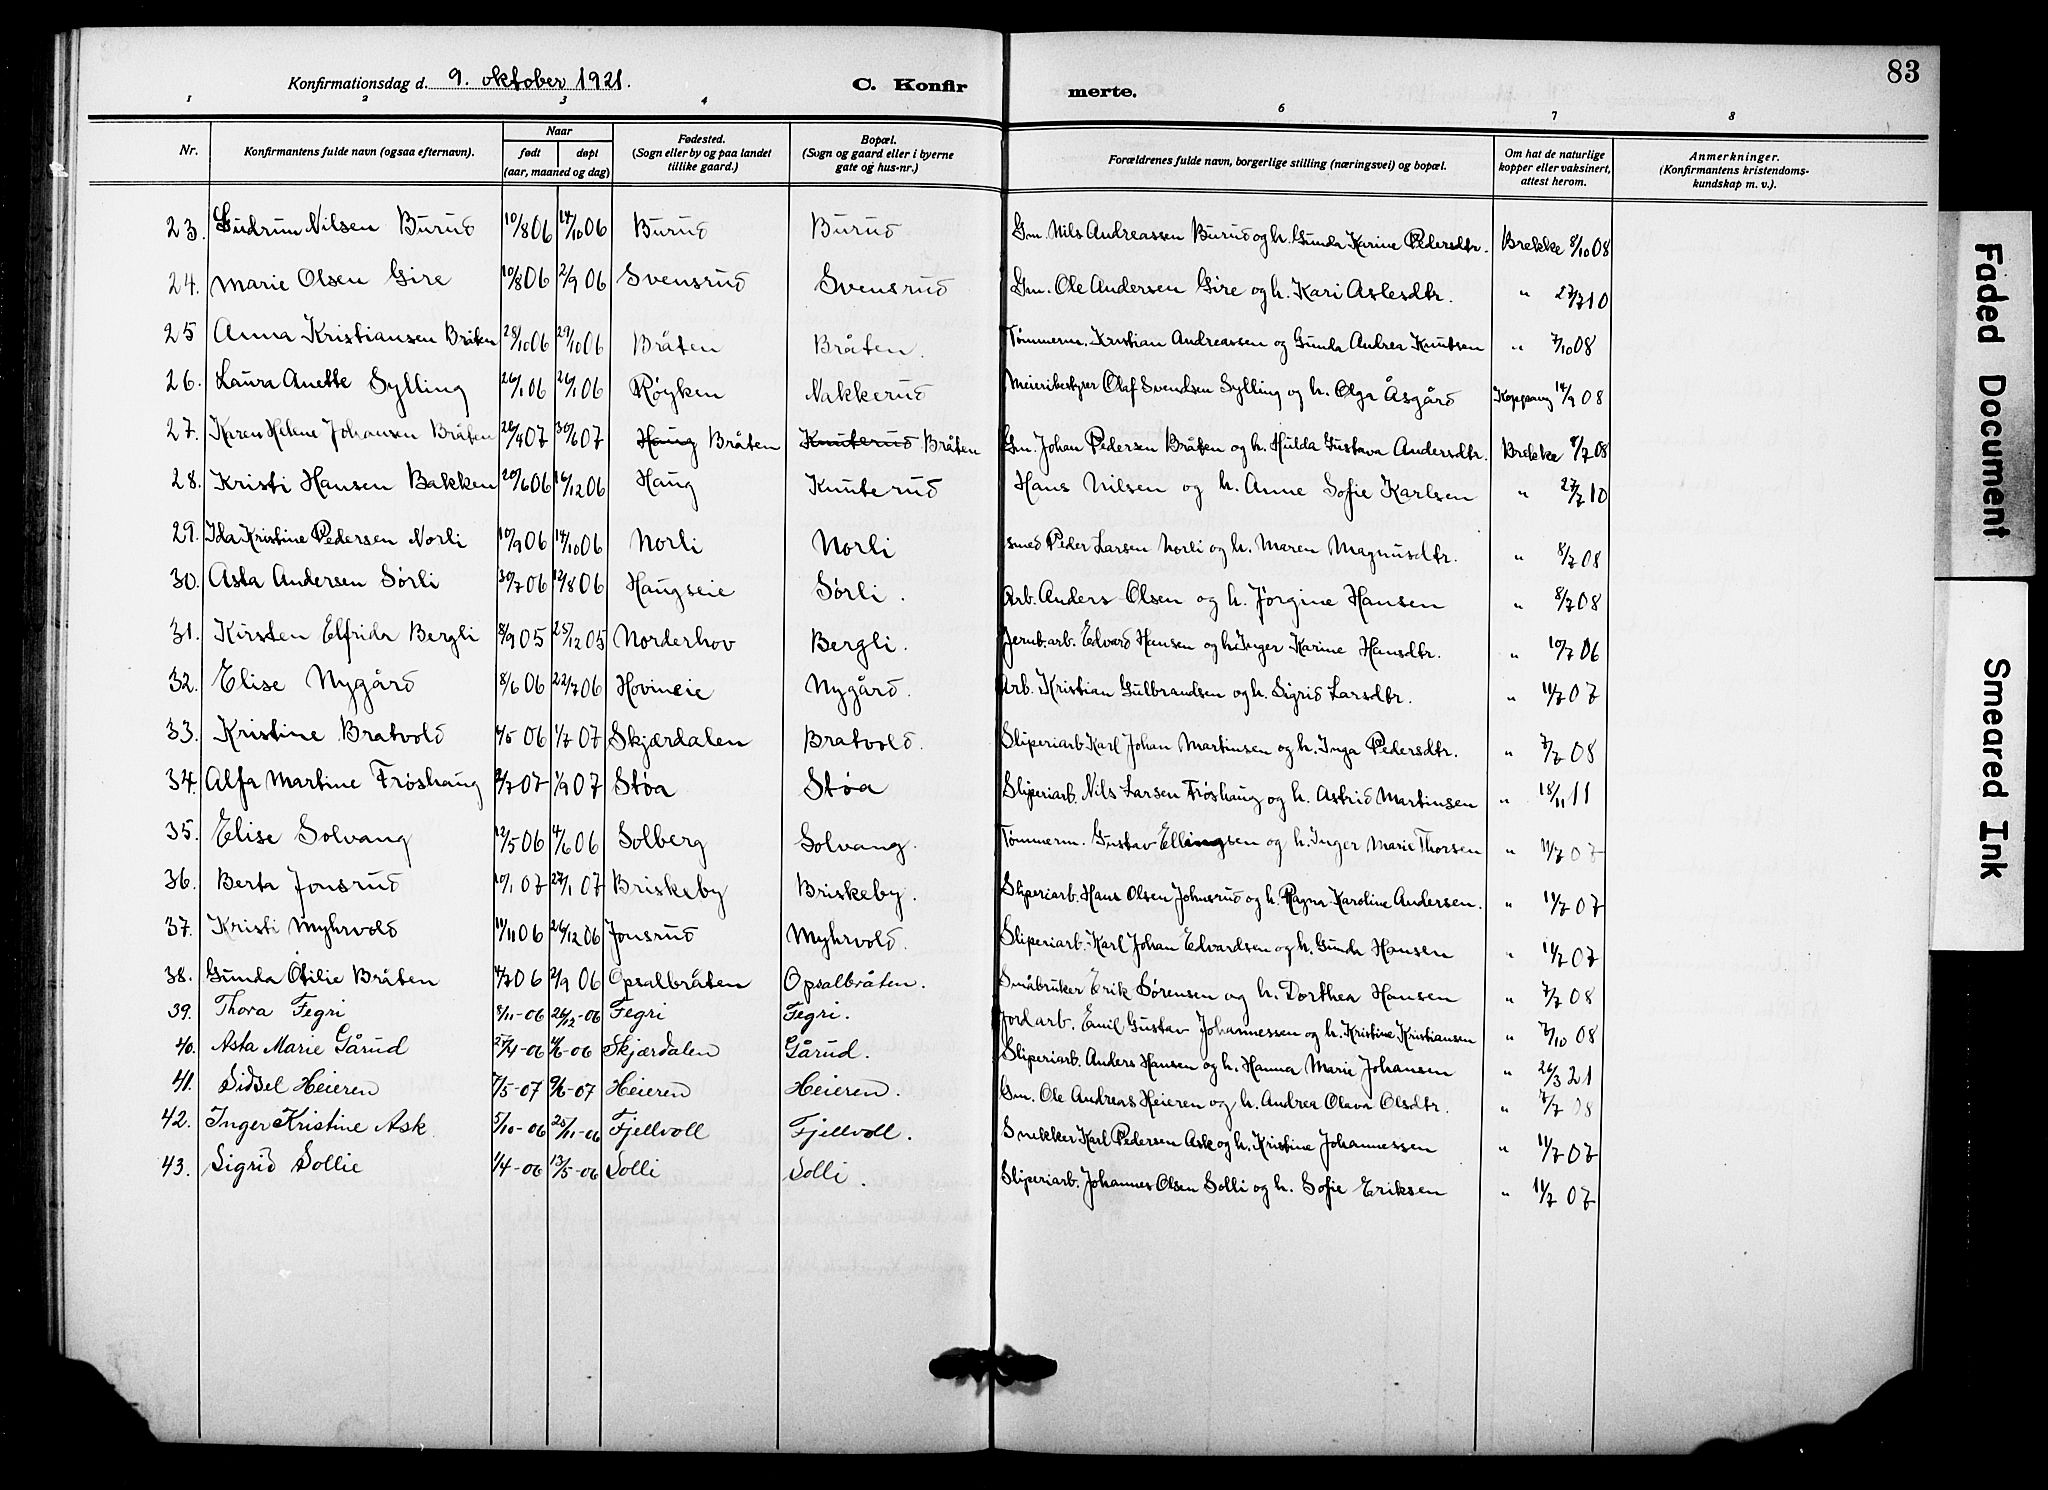 83
Konfirmationsdag d. 9. oktober 1921. C. Konfir merte.
1 2 3 4 5 6 7 8
Nr. Konfirmantens fulde navn (ogsaa efternavn). Naar født døpt (aar, maaned og dag) Fødested. (Sogn eller by og paa landet tillike gaard.) Bopæl. (Sogn og gaard eller i byerne gate og hus-nr.) Forældrenes fulde navn, borgerlige stilling (næringsvei) og bopæl. Om hat de naturlige kopper eller vaksinert, attest herom. Anmerkninger. (Konfirmantens kristendomskundskap m. v.).
23. Gudrun Nilsen Burud 10/8 06 14/10 06 Burud Burud Gm. Nils Andreassen Burud og h. Gunda Karine Pedersdtr. Brekke 8/10 08
24. Marie Olsen Gire 10/8 06 2/9 06 Svensrud Svensrud Gm. Ole Andersen Gire og h. Kari Aslesdtr. " 27/7 10
25 Anna Kristiansen Bråten 28/10 06 29/10 06 Bråten Bråten. Tømmerm. Kristian Andreassen og Gunda Andrea Knutsen " 7/10 08
26. Laura Anette Sylling 26/1 06 26/1 06 Røyken Nakkerud Meieribestyrer Olaf Svendsen Sylling og h. Olga Åsgård Koppang 14/9 08
27. Karen Helene Johansen Bråten 26/4 07 30/6 07 Haug Bråten Knuterud Bråten Gm. Johan Pedersen Bråten og h. Hulda Gustava Andersdtr. Brekke 8/7 08
28. Kristi Hansen Bakken 20/6 06 16/12 06 Haug Knuterud Hans Nilsen og h. Anne Sofie Karlsen " 27/7 10
29. Ida Kristine Pedersen Norli 10/9 06 14/10 06 Norli Norli Smed Peder Larsen Norli og h. Maren Magnusdtr. " 8/7 08
30. Asta Andersen Sørli 30/7 06 12/8 06 Haugseie Sørli. Arb. Anders Olsen og h. Jørgine Hansen " 8/7 08
31. Kirsten Elfrida Bergli 8/9 05 25/12 05 Norderhov Bergli. Jernb.arb. Edvard Hansen og h. Inger Karine Hansdtr. " 10/7 06
32. Elise Nygård 8/6 06 22/7 06 Hovineie Nygård. Arb. Kristian Gulbrandsen og h. Sigrid Larsdtr. " 11/7 07
33. Kristine Bratvold 4/5 06 1/7 07 Skjærdalen Bratvold. Sliperiarb. Karl Johan Martinsen og h. Inga Pedersdtr. " 7/7 08
34. Alfa Martine Frøshaug 2/7 07 1/9 07 Støa Støa Sliperiarb. Nils Larsen Frøshaug og h. Astrid Martinsen " 18/11 11
35. Elise Solvang 12/5 06 4/6 06 Solberg Solvang. Tømmerm. Gustav Ellingsen og h. Inger Marie Thorsen " 11/7 07
36. Berta Jonsrud 10/1 07 27/1 07 Briskeby Briskeby. Sliperiarb. Hans Olsen Johnsrud og h. Ragna Karoline Andersen. " 11/7 07
37. Kristi Myhrvold 11/11 06 26/12 06 Jonsrud Myhrvold. Sliperiarb. Karl Johan Edvardsen og h. Gunda Hansen " 11/7 07
38. Gunda Otilie Bråten 4/7 06 2/9 06 Opsalbråten Opsalbråten. Småbruker Erik Sørensen og h. Dorthea Hansen " 7/7 08
39. Thora Fegri 8/11-06 26/12-06 Fegri Fegri. Jordarb. Emil Gustav Johannessen og h. Kristine Kristiansen " 7/10 08
40. Asta Marie Gårud 27/4-06 4/6-06 Skjærdalen Gårud. Sliperiarb. Anders Hansen og h. Hanna Marie Johansen " 26/3 21
41. Sidsel Heieren 7/5-07 9/6-07 Heieren Heieren. Gm. Ole Andreas Heieren og h. Andrea Olava Olsdtr. " 7/7 08
42. Inger Kristine Ask 5/10-06 25/11-06 Fjellvoll Fjellvoll. Snekker Karl Pedersen Ask og h. Kristine Johannessen " 11/7 07
43. Sigrid Sollie 1/4-06 13/5-06 Solli Solli. Sliperiarb. Johannes Olsen Solli og h. Sofie Eriksen " 11/7 07
Faded Document
Smeared Ink